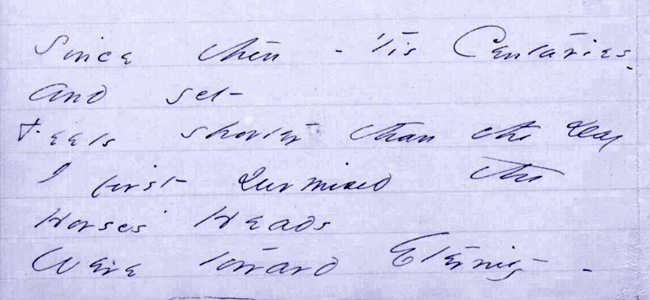 Since then - 'tis Centuries.
and yet
Feels shorter than the Day
I first surmised the
Horses' Heads
Were toward Eternity -